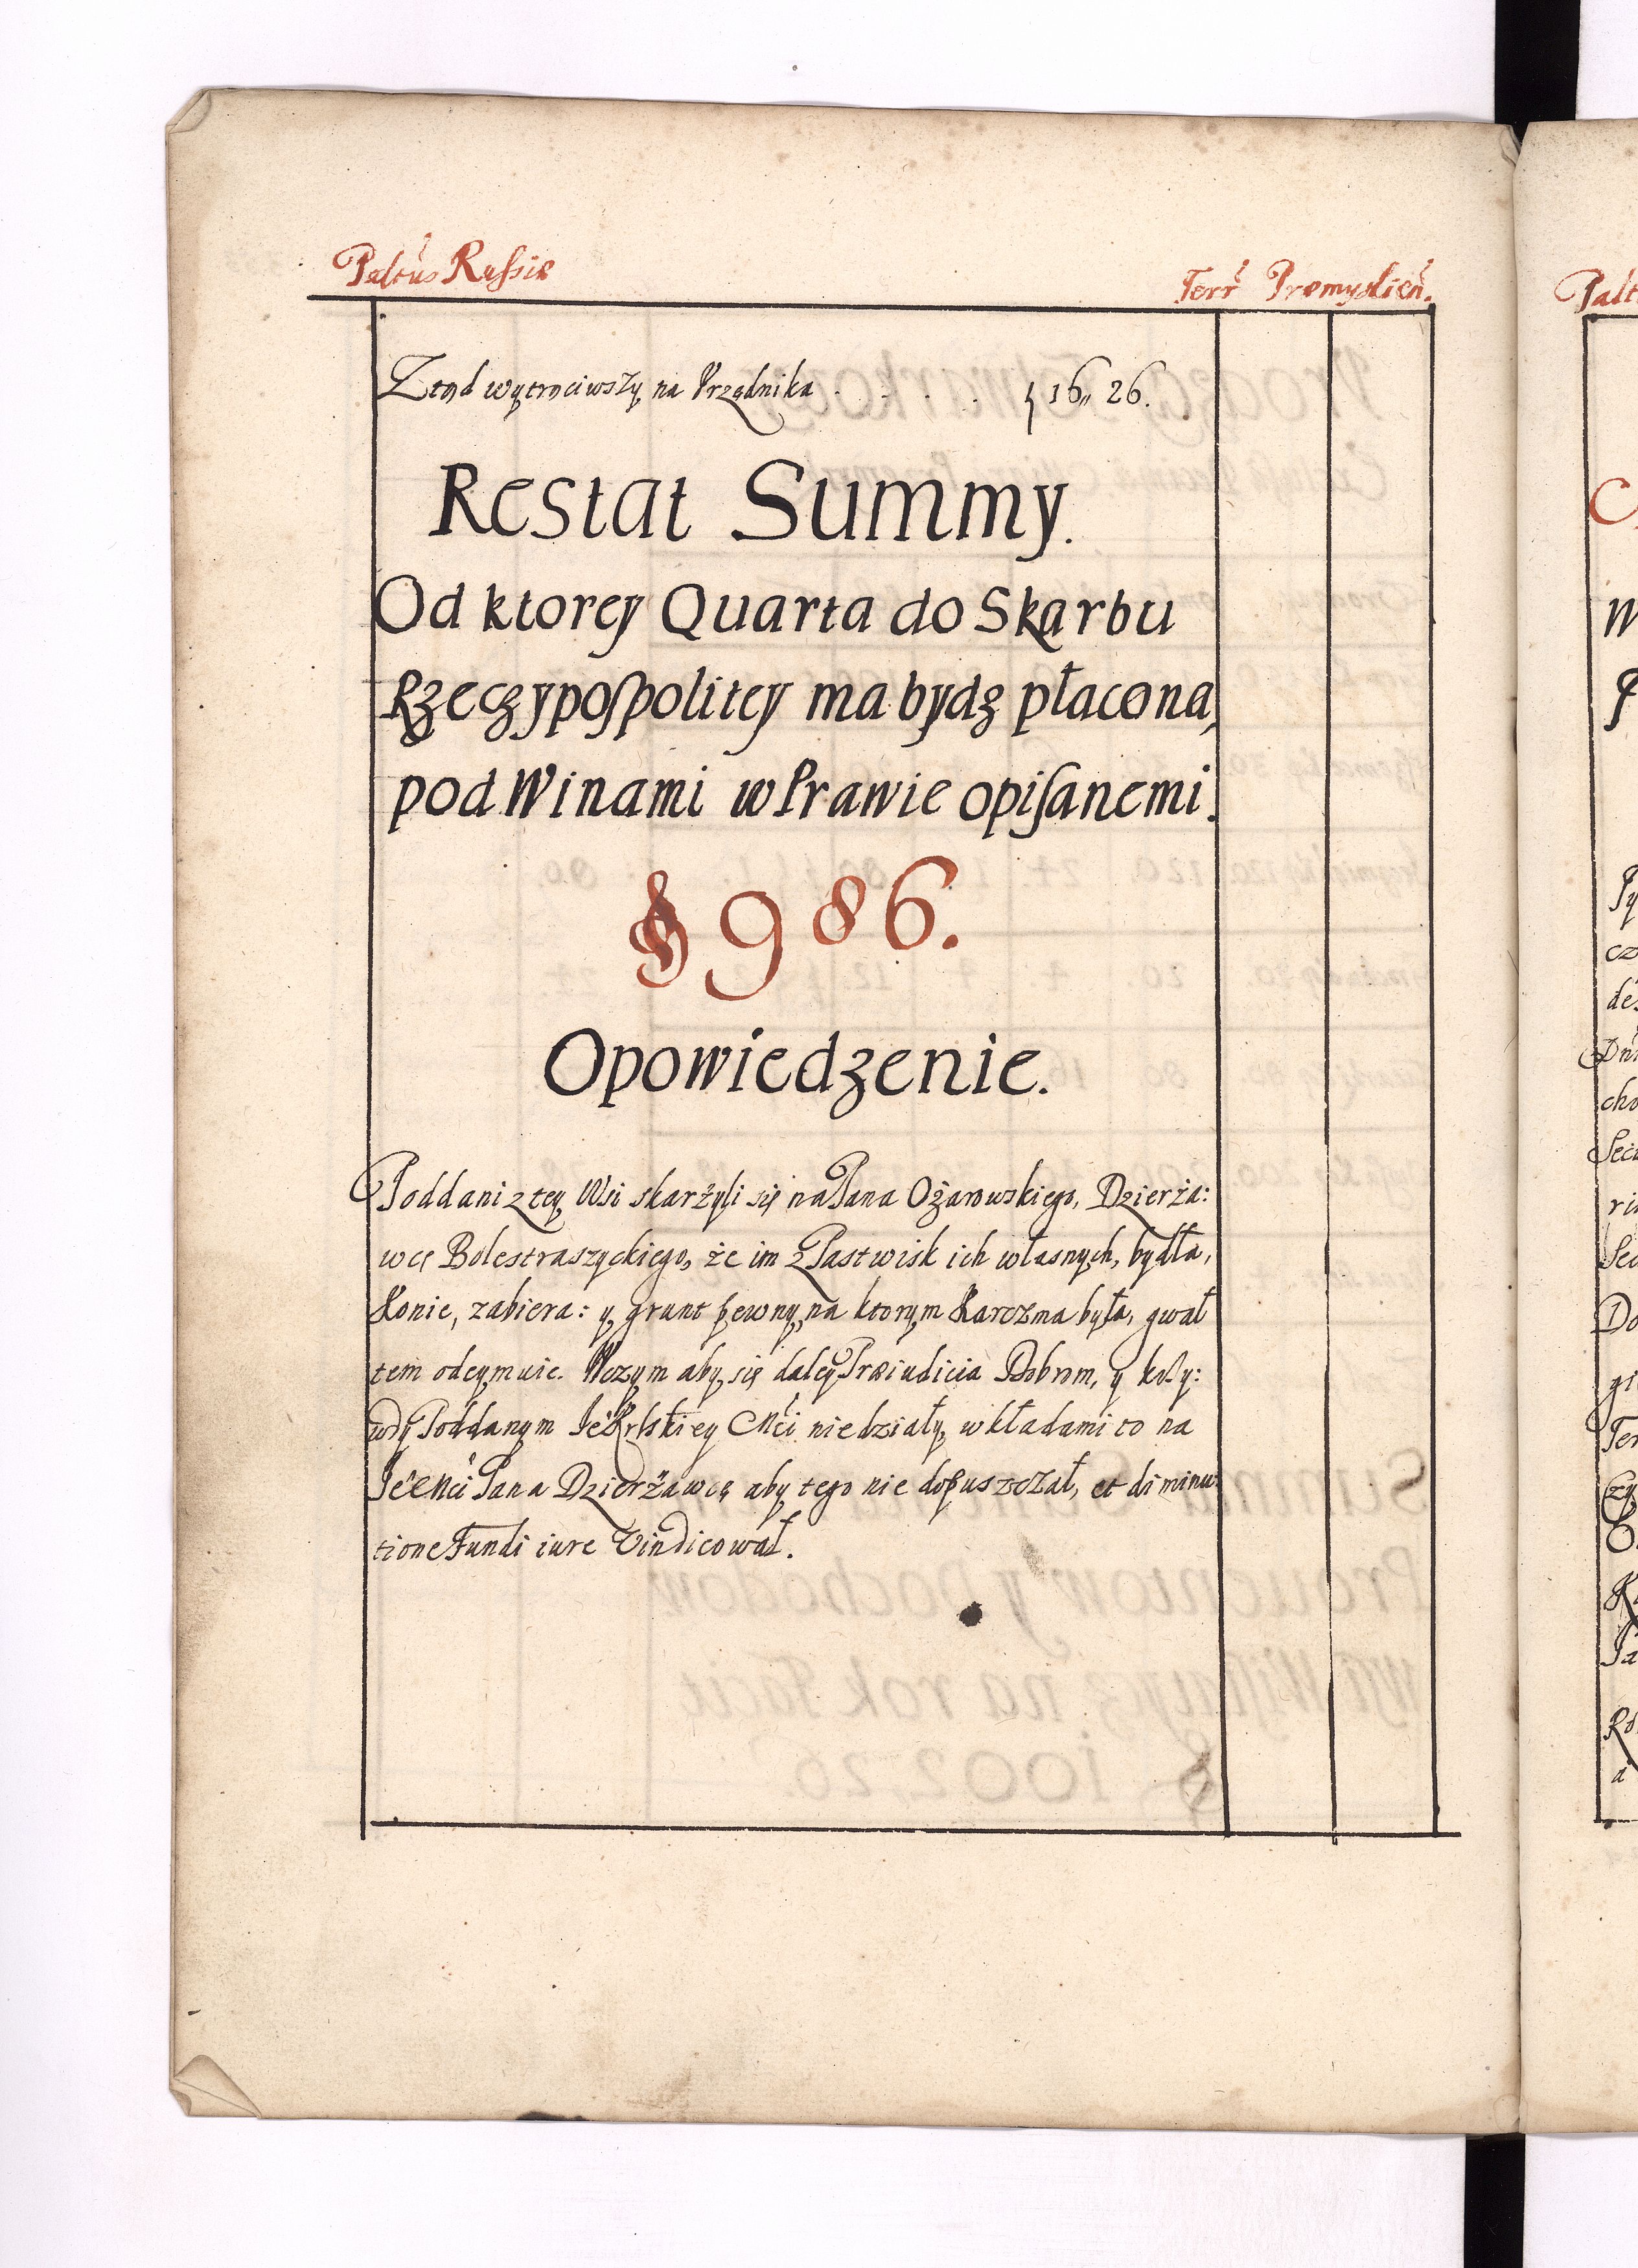 Paltus Russiæ
Terr Premyslien.
Ztąd wytrąciwszy na Urzędnika . . . . . 16„ 26.
Restat Summy.
Od ktorey Quarta do Skarbu
Rzeczypospolitey ma bydz płacona,
pod Winami w Prawie opisanemi.
986.
Opowiedzenie.
Poddani z tey Wsi skarżyli się na Pana Ożarowskiego, Dzierża:
wcę Bolestraszyckiego, że im z Pastwisk ich własnych, bydła,
Konie, zabiera: y grunt pewny, na ktorym Karczma była, gwał
tem odeymuie. Wczym aby się daley Præiudicia Dobrom, y krzy:
wdy Poddanym Je Krlskiey Mci niedziały, wkładami to na
Je Mci Pana Dzierżawcę aby tego nie dopuszczał, et diminu
tione Fundi iure Vindicował.
Palt